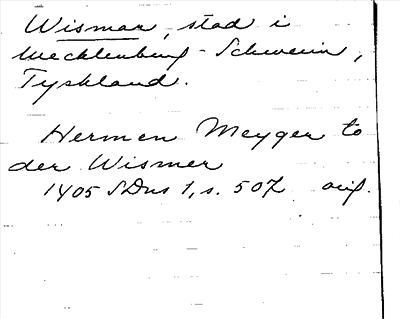 Wismar, stad i
Mecklenburg-Schwerin,
Tyskland.
Hermen Meyger to
der Wismer
1405 SDns 1, s. 507 orig.